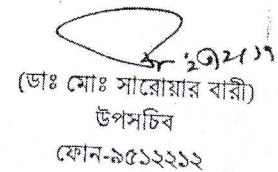 (ডাঃ মোঃ সারোয়ার বারী)
উপসচিব
ফোন-৯৫১২২১২